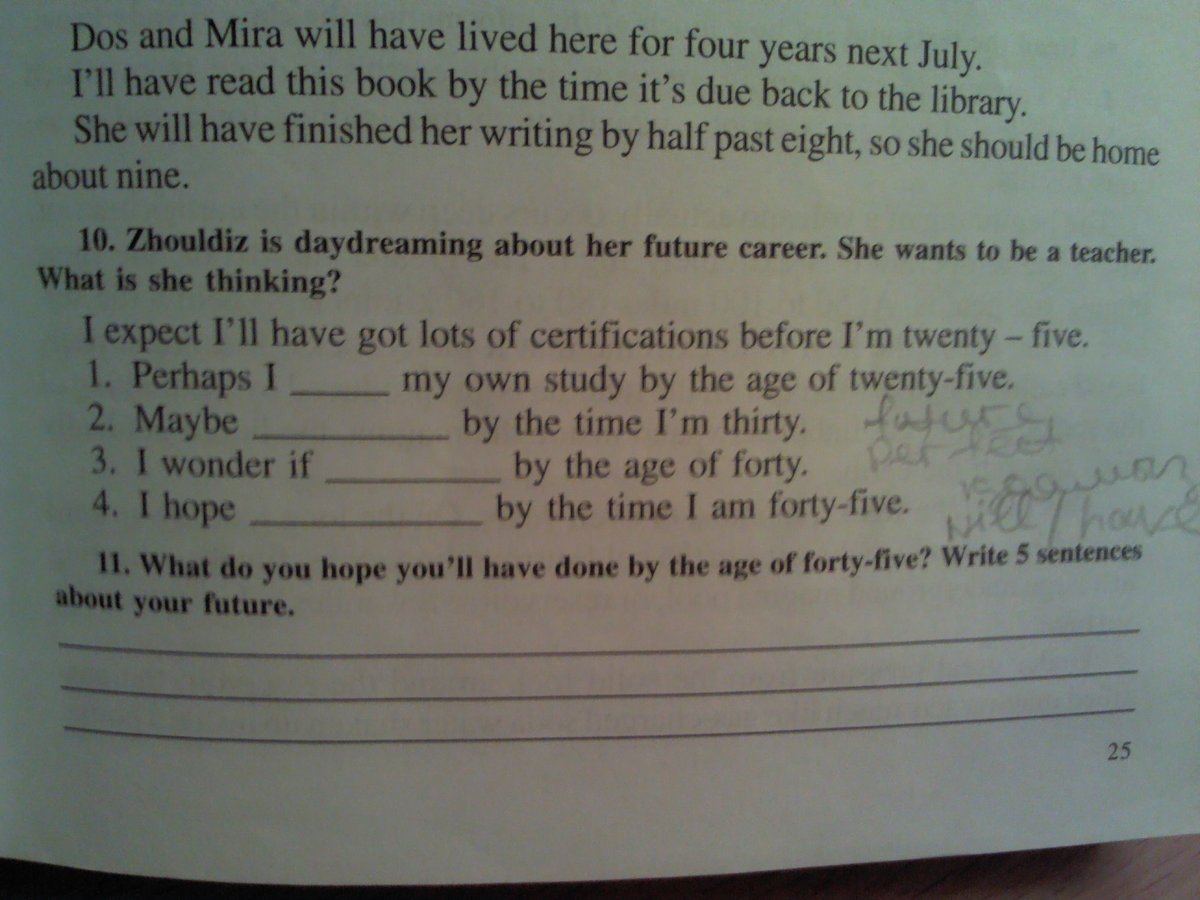 Dos and Mira will have lived here for four years next July.
I'll have read this book by the time it's due back to the library.
She will have finished her writing by half past eight, so she should be home
about nine.
10. Zhouldiz is daydreaming about her future career. She wants to be a teacher.
What is she thinking?
I expect I'll have got lots of certifications before I'm twenty – five.
1. Perhaps I ______ my own study by the age of twenty-five.
2. Maybe ____________ by the time I'm thirty.
future
perfect
3. I wonder if ___________ by the age of forty.
4. I hope ______________ by the time I am forty-five.
will / have
11. What do you hope you'll have done by the age of forty-five? Write 5 sentences
about your future.
25